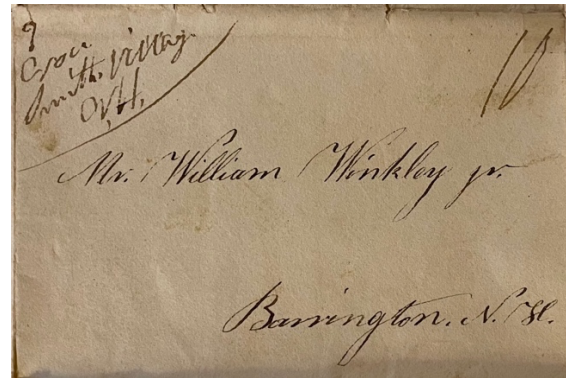 Smith. Village
N.H.
10
Mr. William Winkley jr.
Barrington. N. H.